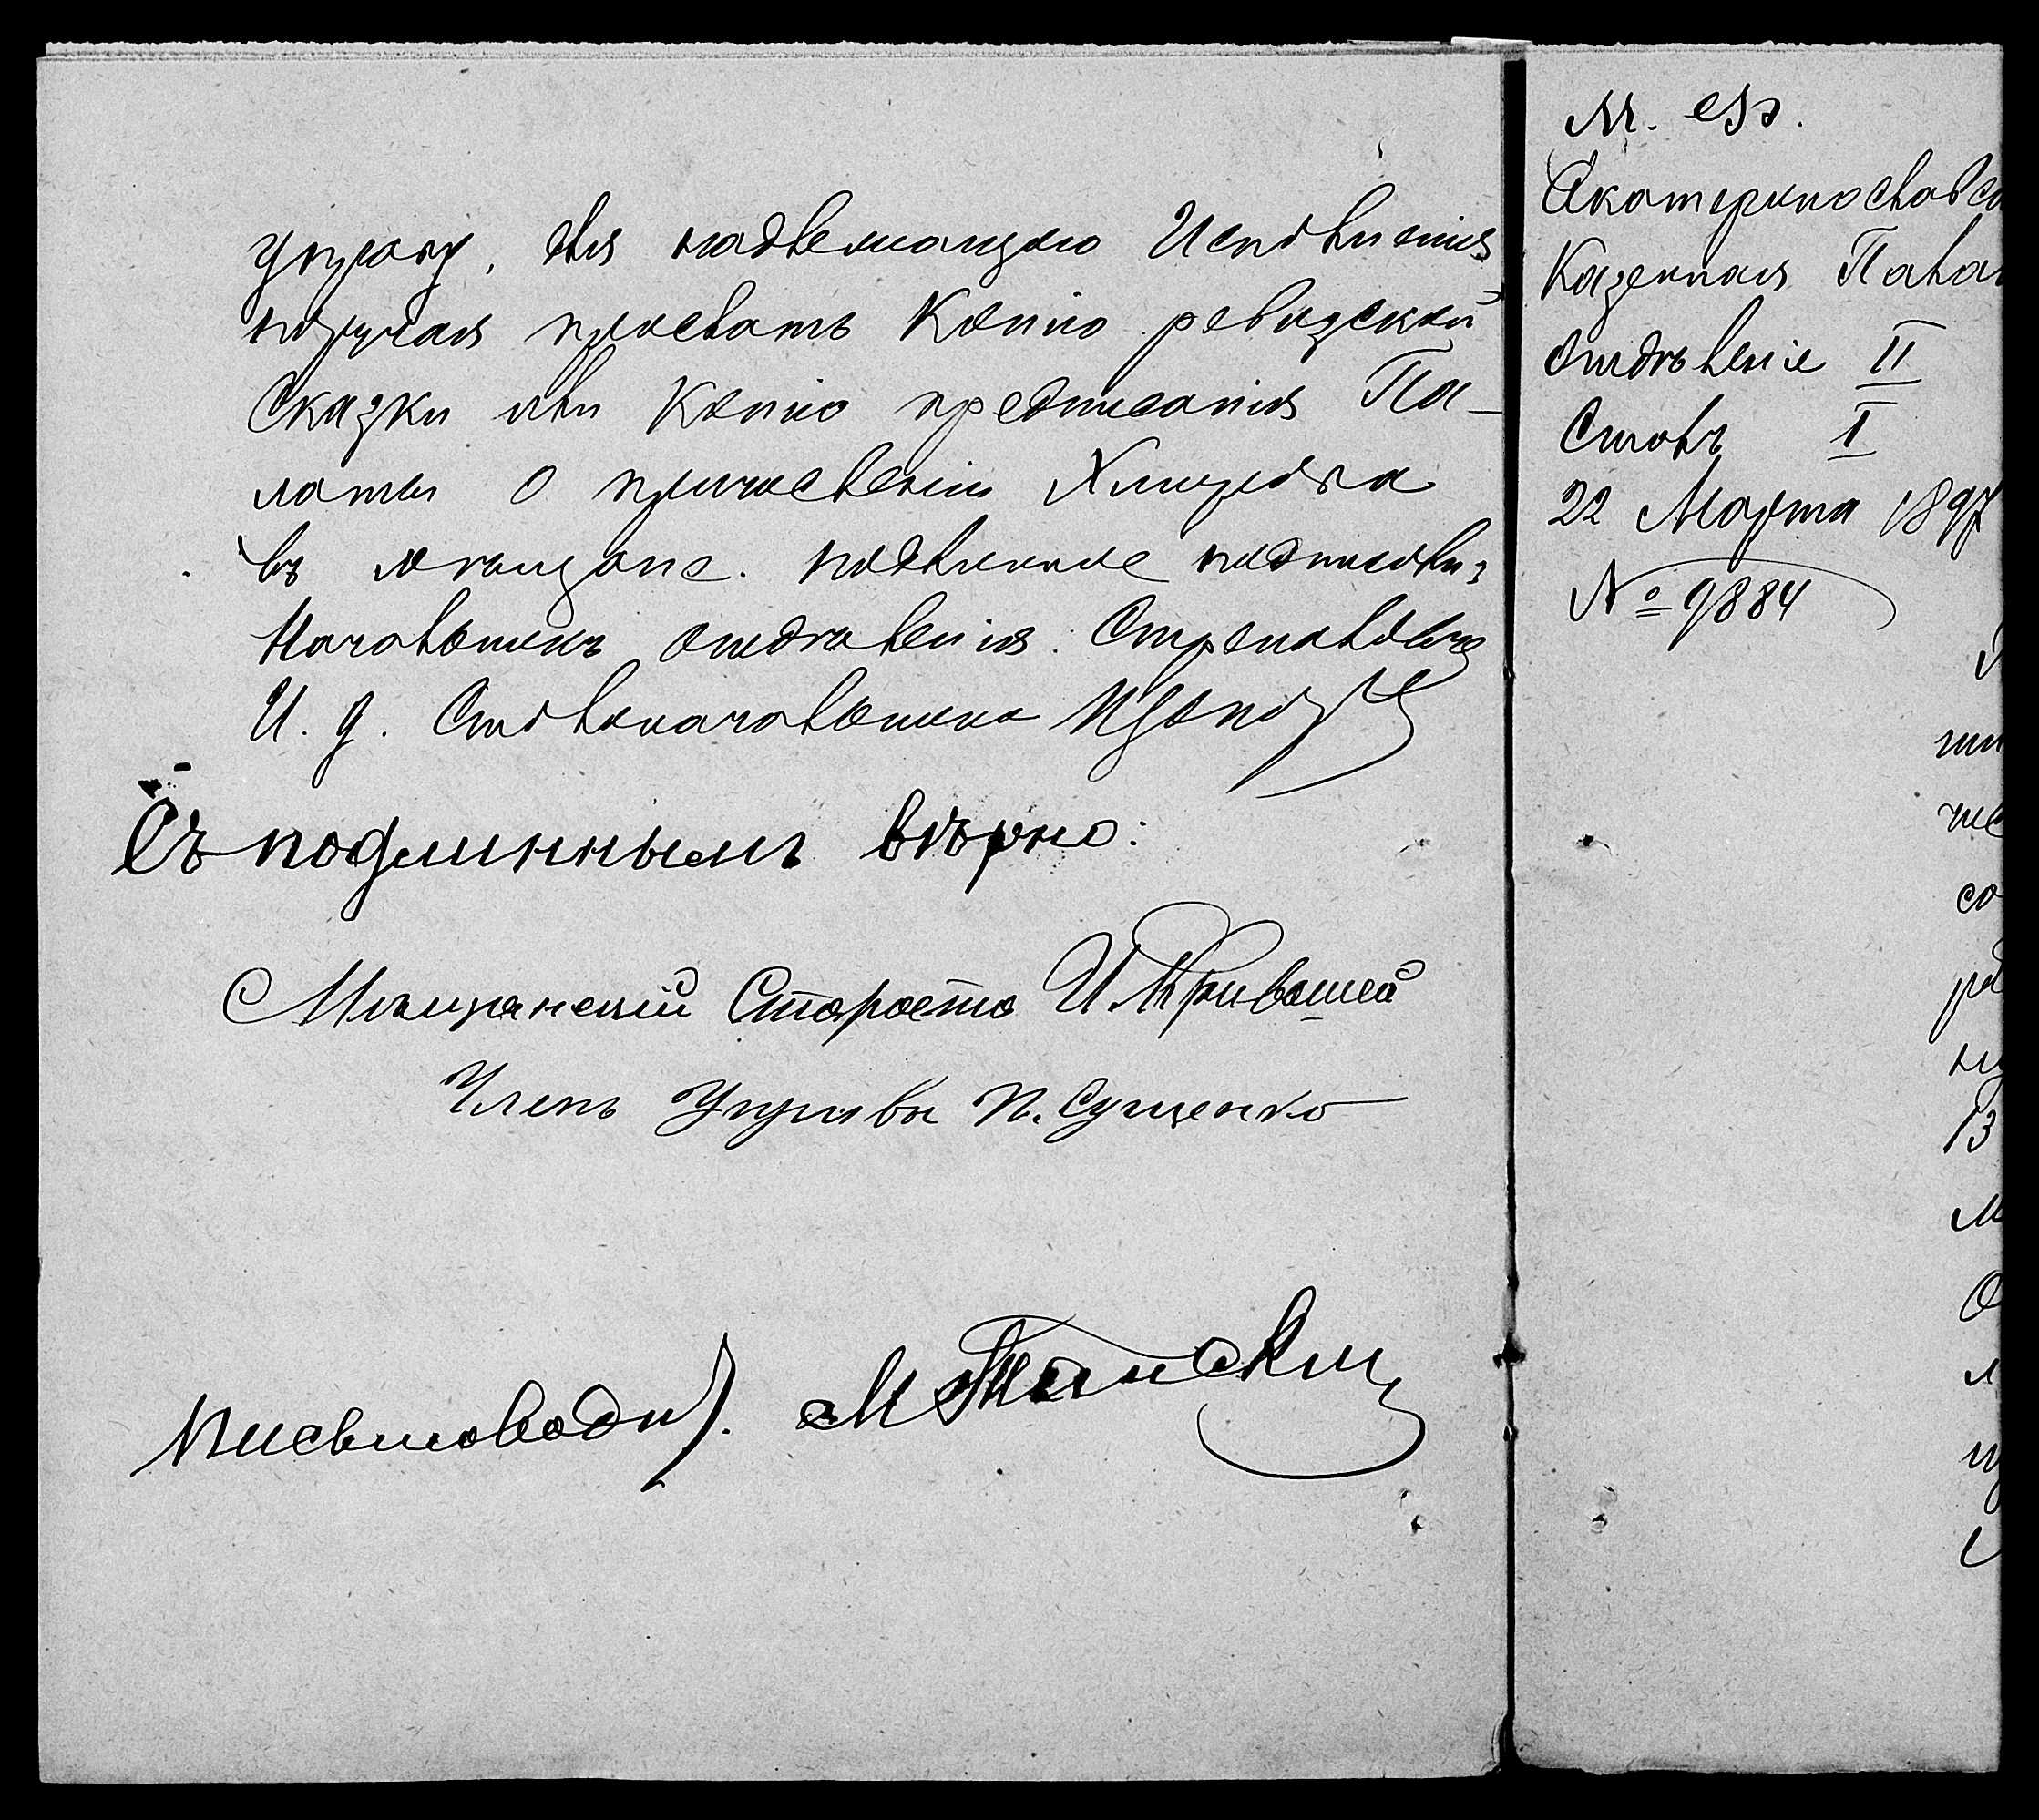 Управу, для надлежащаго Исполненія
поручая прислать Копію ревизской
Сказки или Копію предписанія Па-
латы о причисленіи
въ мѣщане. подлинное подписали:
Начальникъ отдѣленія
И. д. Столоначальника
Съ подлиннымъ вѣрно:
Мѣщанскій Староста И. Кривошея
Членъ Управы П. Сущенко
Письмоводит. М.
М. Ф.
Екатеринославск
Казенная Пала
Отдѣленіе II
Столъ I
22 Марта 1897
№ 9884